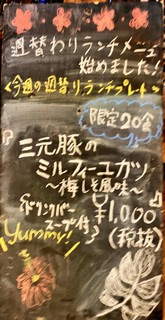 週替わりランチメニュー
始めました!
<今週の週替りランチプレート>
限定20食
『三元豚の
ミルフィーユカツ
～梅しそ風味～』
ドリンクバー
スープ付
¥1,000
(税抜)
Yummy!